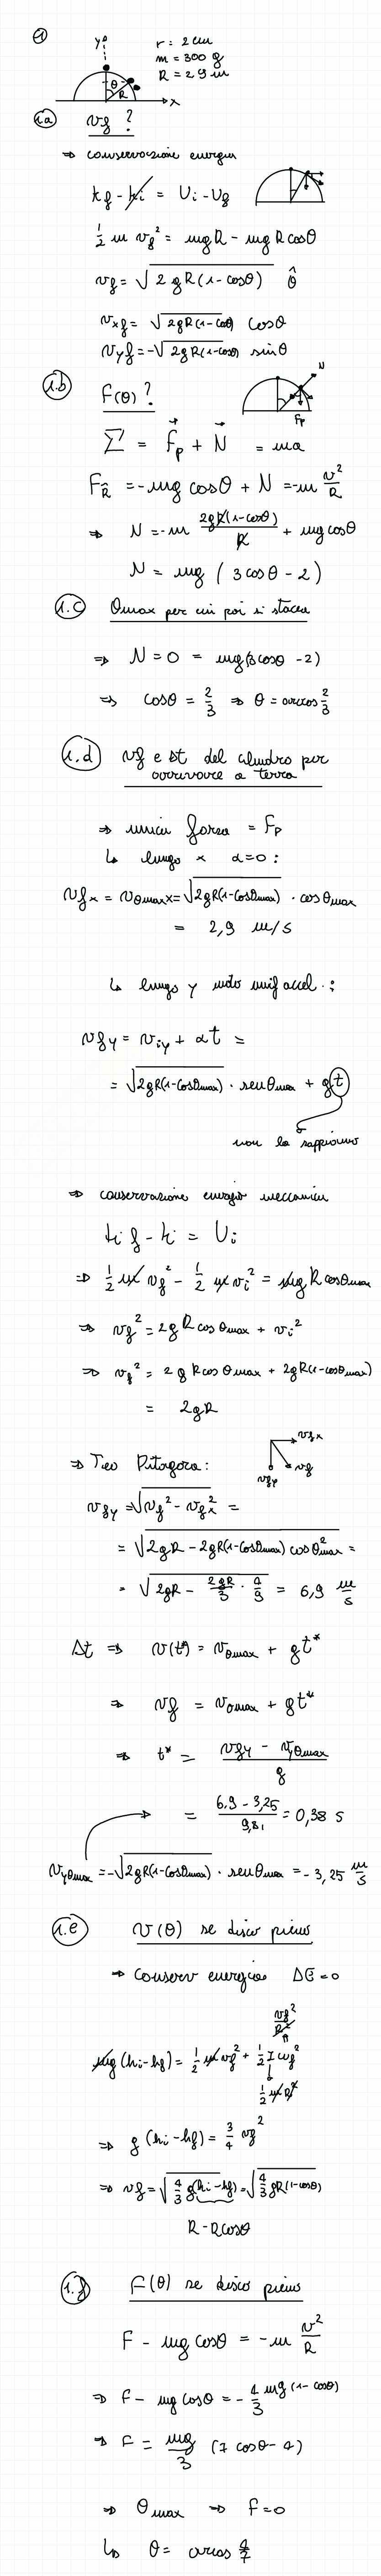 1
y
r = 2 cm
m = 300 g
R = 2.9 m
θ
R
x
1.a vf ?
⇒ conservazione energia
kf - ki = Ui - Uf
1/2 m vf² = mgR - mgR cosθ
vf = √(2gR(1-cosθ)) θ̂
vxf = √(2gR(1-cosθ)) cosθ
vyf = -√(2gR(1-cosθ)) sinθ
1.b F(θ) ?
N
Fp
Σ = Fp + N = ma
F_R̂ = -mg cosθ + N = -m v²/R
⇒ N = -m 2gR(1-cosθ)/R + mg cosθ
N = mg (3cosθ - 2)
1.c θmax per cui poi si stacca
⇒ N = 0 = mg(3cosθ - 2)
⇒ cosθ = 2/3 ⇒ θ = arccos 2/3
1.d vf e Δt del cilindro per
arrivare a terra
⇒ unica forza = Fp
↳ lungo x a=0 :
vfx = vθmaxx = √(2gR(1-cosθmax)) · cosθmax
= 2,9 m/s
↳ lungo y moto unif accel. :
vfy = viy + at =
= √(2gR(1-cosθmax)) · senθmax + gt
non lo sappiamo
⇒ conservazione energia meccanica
kf - ki = Ui
⇒ 1/2 m vf² - 1/2 m vi² = mgR cosθmax
⇒ vf² = 2gR cosθmax + vi²
⇒ vf² = 2gR cosθmax + 2gR(1-cosθmax)
= 2gR
⇒ Teo Pitagora:
vfx
vf
vfy
vfy = √(vf² - vfx²) =
= √(2gR - 2gR(1-cosθmax) cosθmax²) =
= √(2gR - 2gR/3 · 4/9) = 6,9 m/s
Δt ⇒ v(t*) = vθmax + gt*
⇒ vf = vθmax + gt*
⇒ t* = (vfy - vyθmax)/g
= (6.9 - 3,25)/9,81 = 0,38 s
vyθmax = -√(2gR(1-cosθmax)) · senθmax = -3,25 m/s
1.e v(θ) se disco pieno
⇒ Conserv energia ΔE=0
vf²/R²
mg(hi-hf) = 1/2 m vf² + 1/2 I ωf²
1/2 m R²
⇒ g(hi-hf) = 3/4 vf²
⇒ vf = √(4/3 g(hi-hf)) = √(4/3 gR(1-cosθ))
R - Rcosθ
1.f F(θ) se disco pieno
F - mg cosθ = -m v²/R
⇒ F - mg cosθ = -4/3 mg (1-cosθ)
⇒ F = mg/3 (7 cosθ - 4)
⇒ θmax ⇒ F=0
↳ θ = arccos 4/7